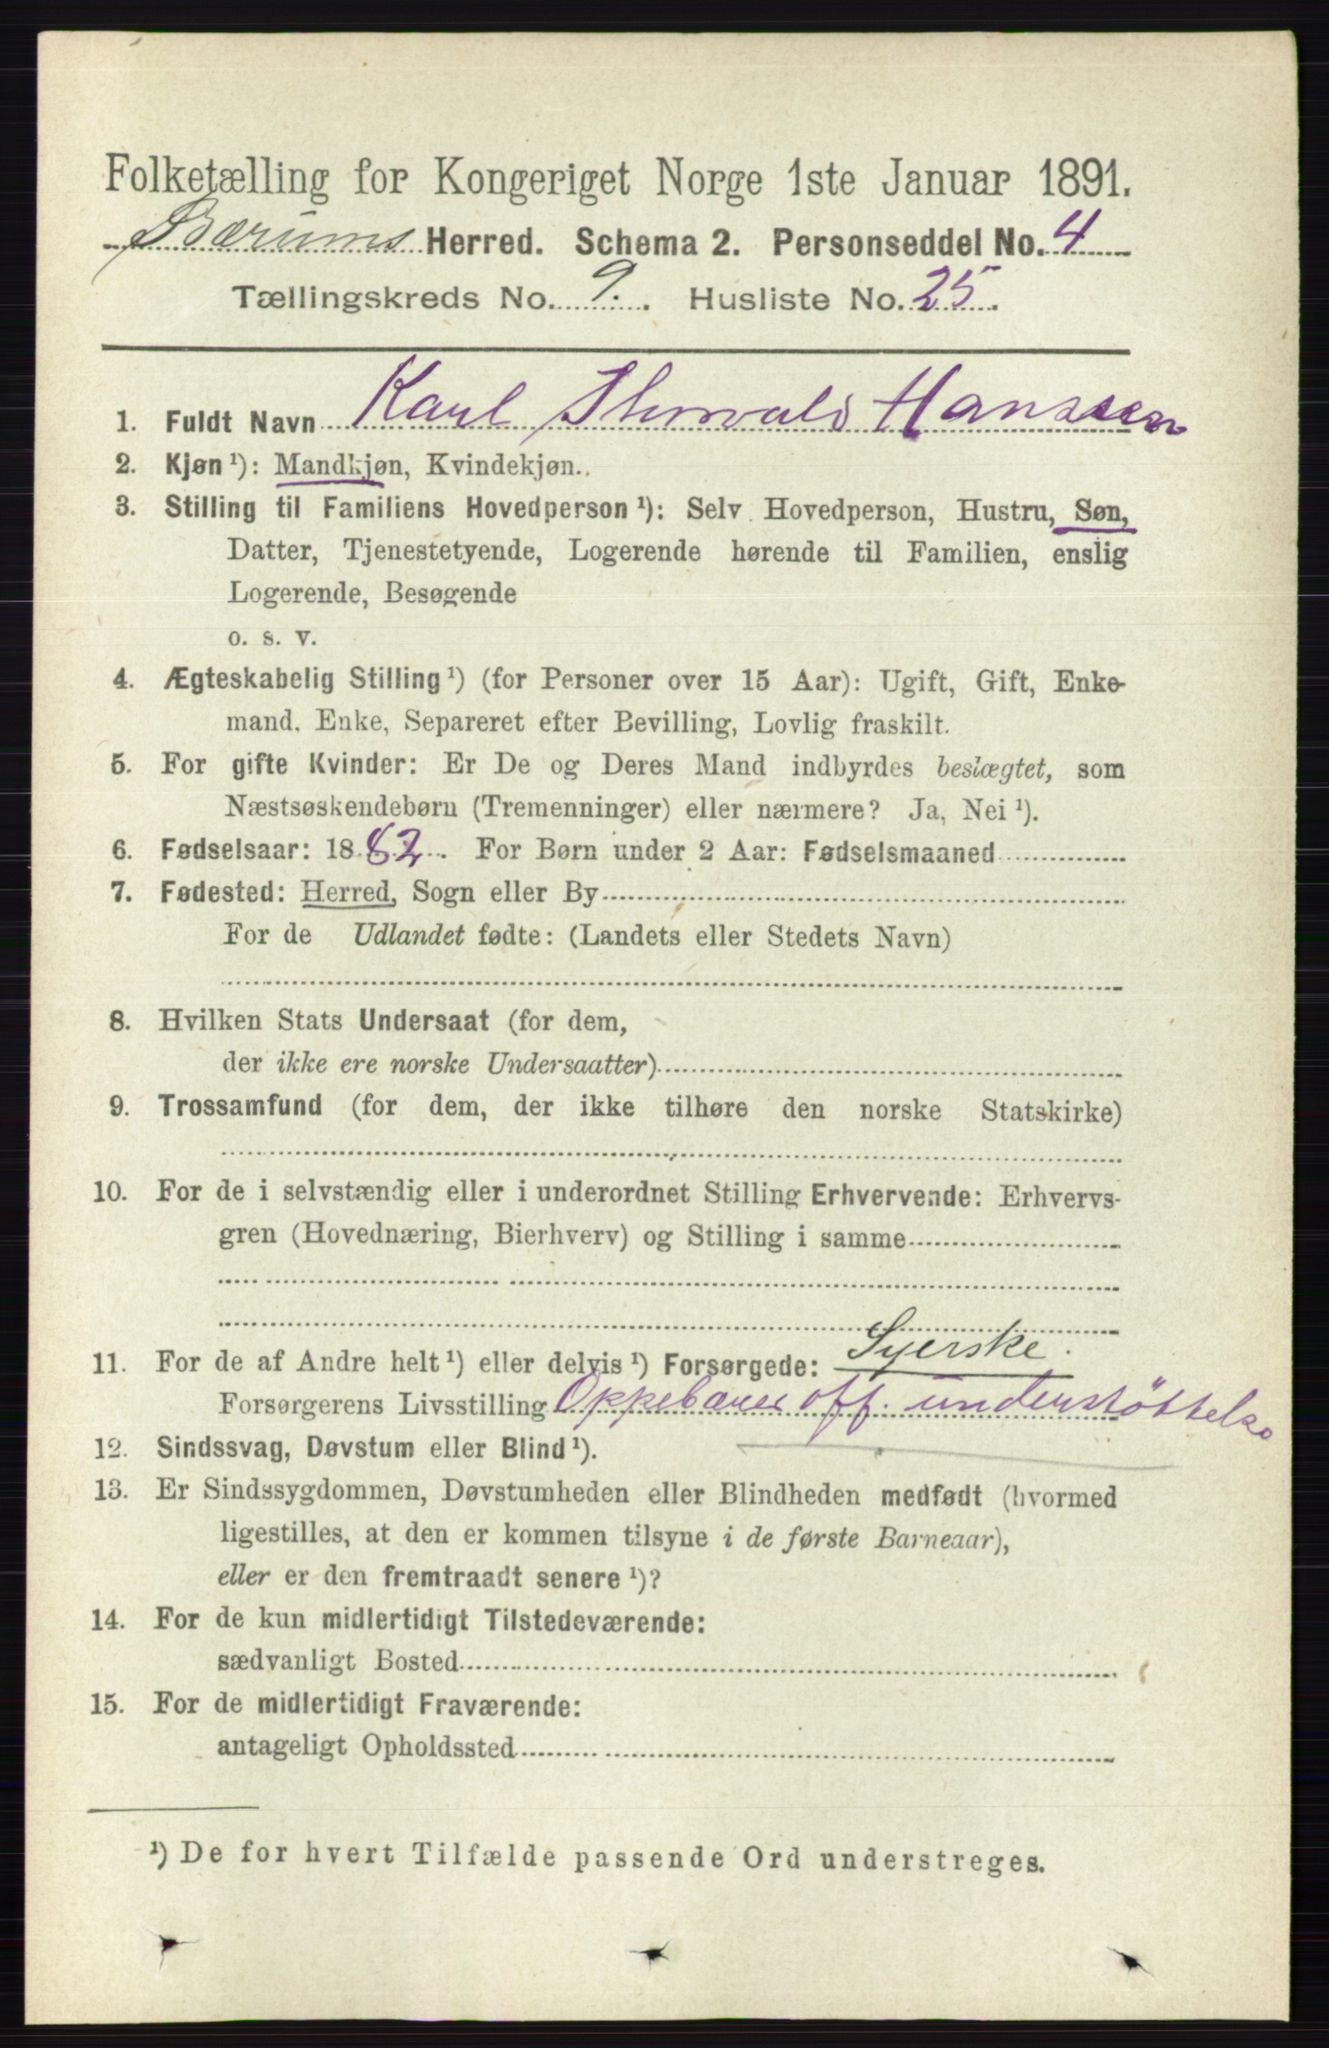 Folketælling for Kongeriget Norge 1ste Januar 1891.
Bærums Herred. Schema 2. Personseddel No. 4
Tællingskreds No. 9. Husliste No. 25.
1. Fuldt Navn Karl Thorvald Hanssen
2. Kjøn ¹): Mandkjøn, Kvindekjøn.
3. Stilling til Familiens Hovedperson ¹): Selv Hovedperson, Hustru, Søn,
Datter, Tjenestetyende, Logerende hørende til Familien, enslig
Logerende, Besøgende
o. s. v.
4. Ægteskabelig Stilling ¹) (for Personer over 15 Aar): Ugift, Gift, Enke-
mand, Enke, Separeret efter Bevilling, Lovlig fraskilt.
5. For gifte Kvinder: Er De og Deres Mand indbyrdes beslægtet, som
Næstsøskendebørn (Tremenninger) eller nærmere? Ja, Nei ¹).
6. Fødselsaar: 1882. For Børn under 2 Aar: Fødselsmaaned
7. Fødested: Herred, Sogn eller By
For de Udlandet fødte: (Landets eller Stedets Navn)
8. Hvilken Stats Undersaat (for dem,
der ikke ere norske Undersaatter)
9. Trossamfund (for dem, der ikke tilhøre den norske Statskirke)
10. For de i selvstændig eller i underordnet Stilling Erhvervende: Erhvervs-
gren (Hovednæring, Bierhverv) og Stilling i samme
11. For de af Andre helt ¹) eller delvis ¹) Forsørgede: Syerske.
Forsørgerens Livsstilling Oppebærer off. understøttelse
12. Sindssvag, Døvstum eller Blind ¹).
13. Er Sindssygdommen, Døvstumheden eller Blindheden medfødt (hvormed
ligestilles, at den er kommen tilsyne i de første Barneaar),
eller er den fremtraadt senere ¹)?
14. For de kun midlertidigt Tilstedeværende:
sædvanligt Bosted
15. For de midlertidigt Fraværende:
antageligt Opholdssted
¹) De for hvert Tilfælde passende Ord understreges.